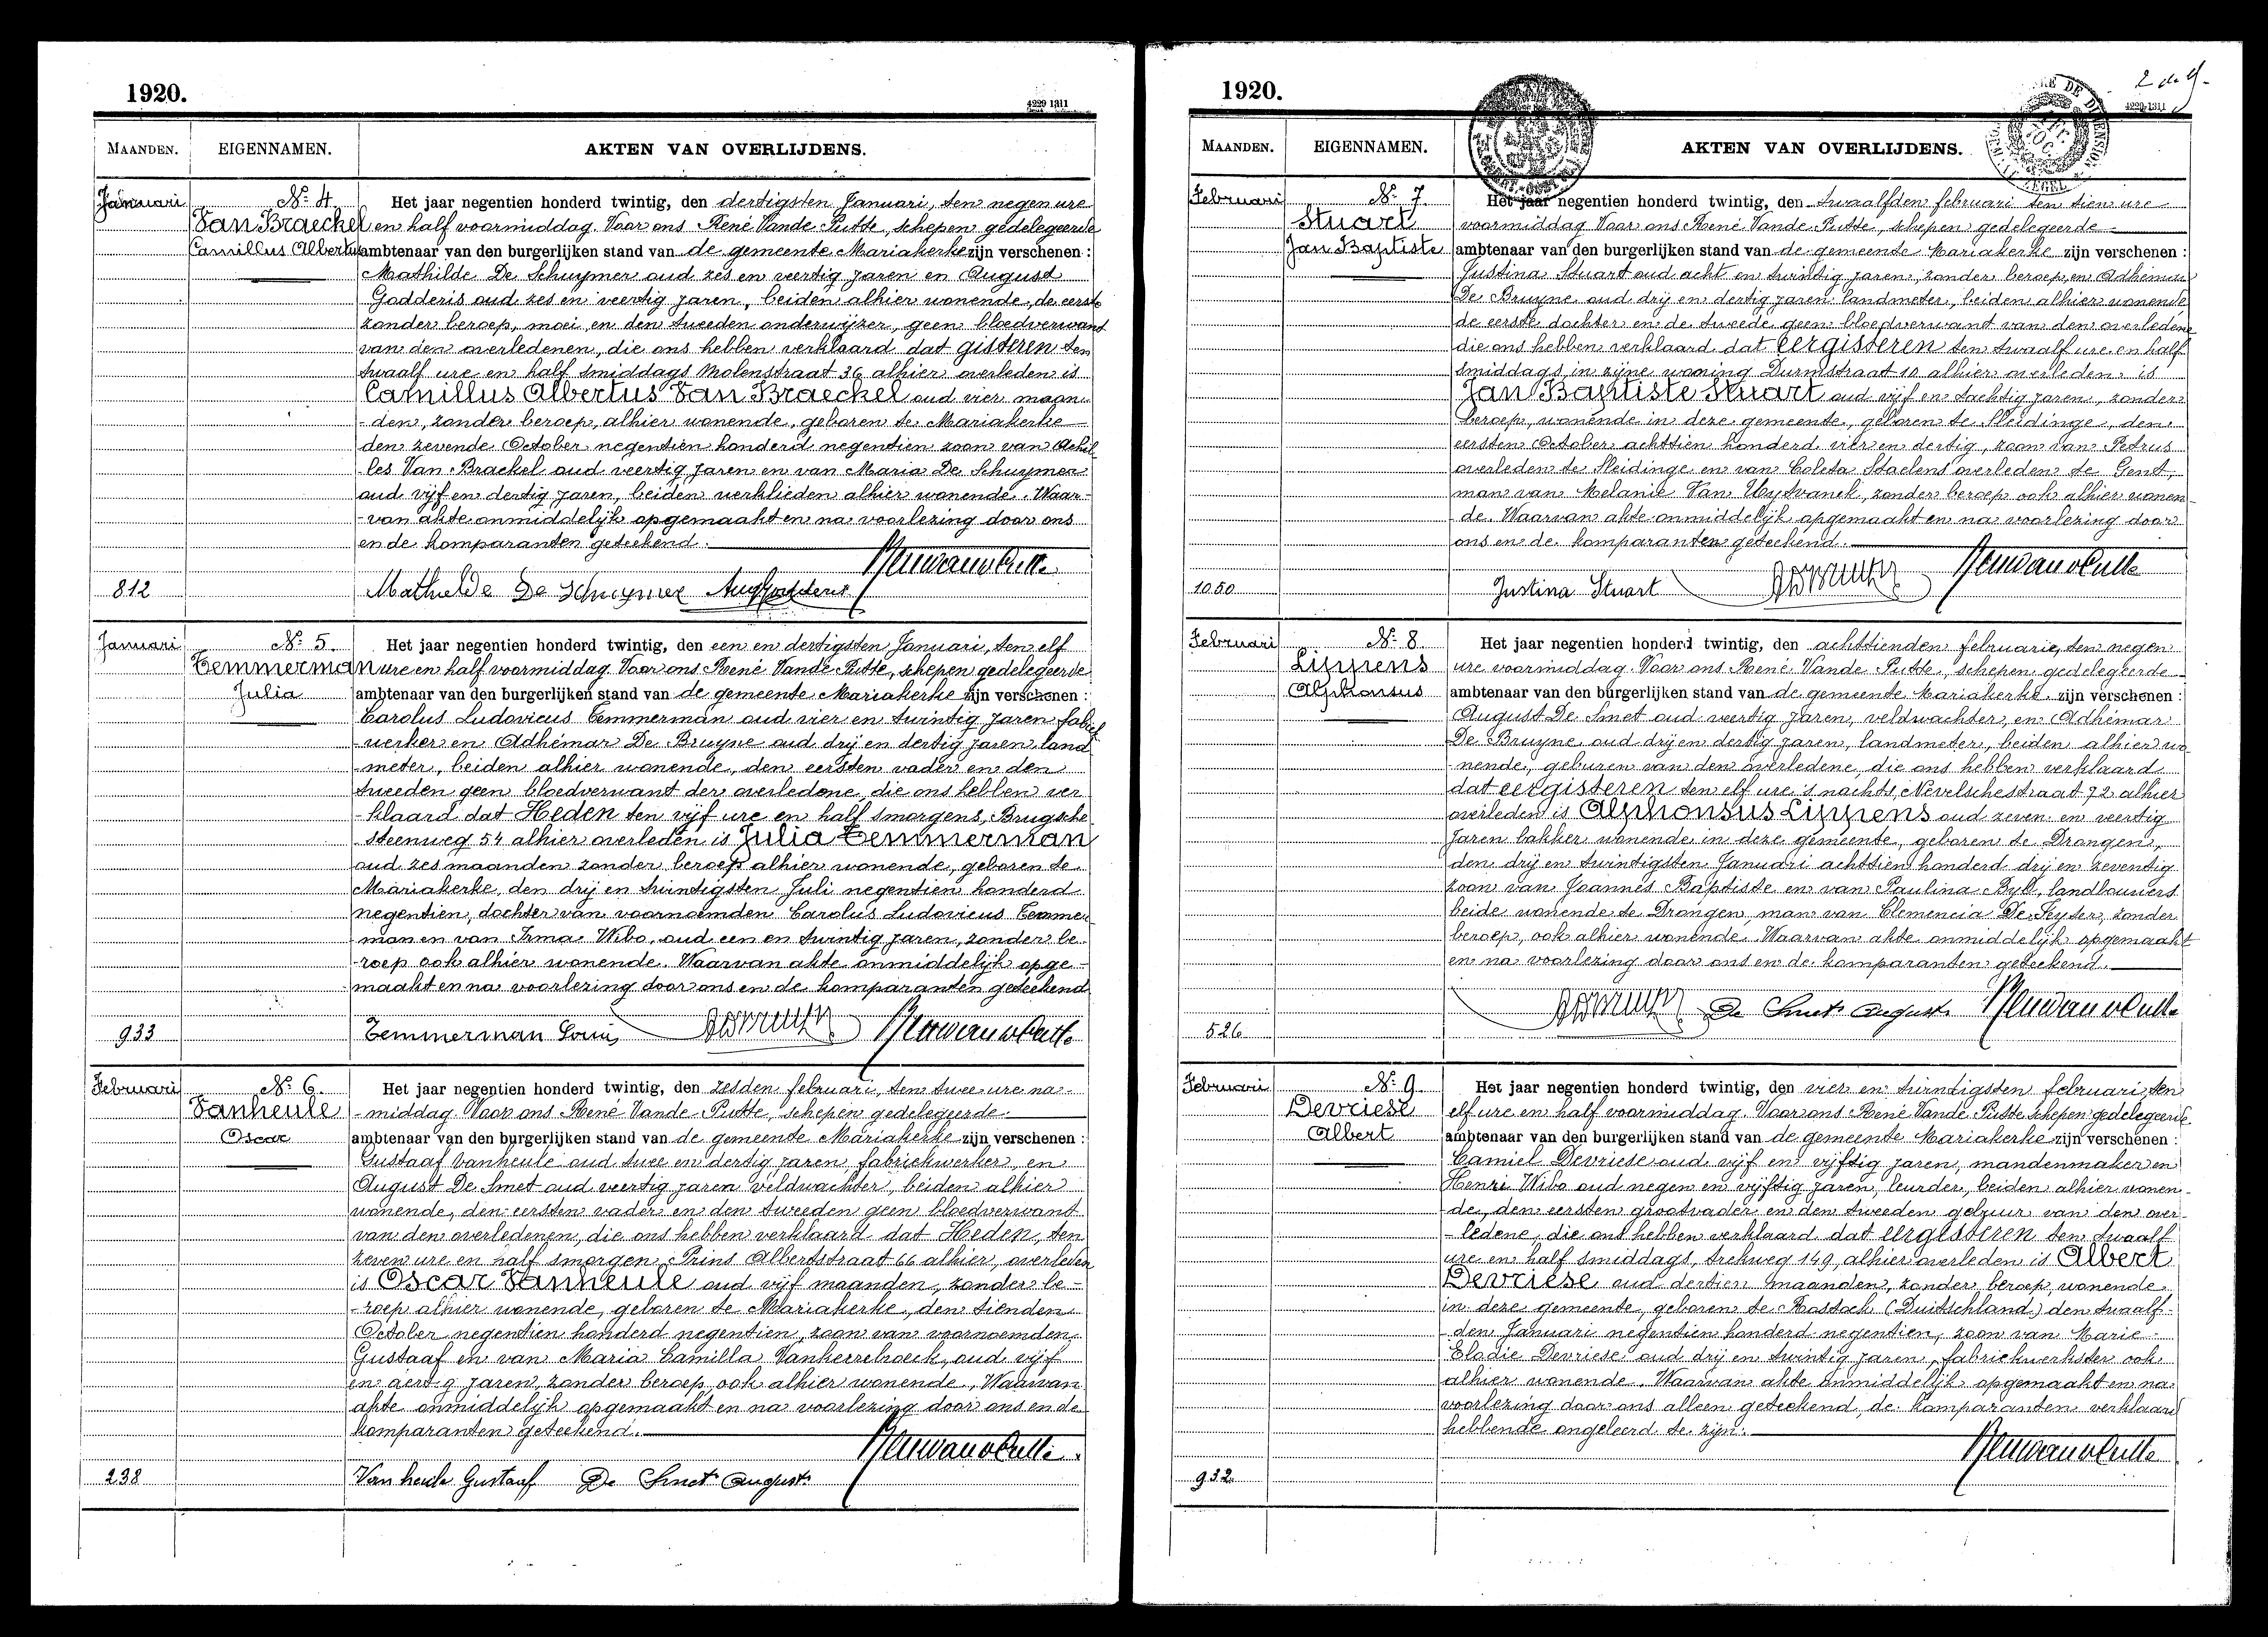 1920.
4229 1311
MAANDEN. EIGENNAMEN. AKTEN VAN OVERLIJDENS.
Januari Nr 4 Het jaar negentien honderd twintig, den dertigsten Januari, ten negen ure
Van Braeckel en half voormiddag. Voor ons René Vande Putte, schepen gedelegeerde
Camillus Albertus ambtenaar van den burgerlijken stand van de gemeente Mariakerke zijn verschenen :
Mathilde De Schuymer oud zes en veertig jaren en August
Godderis oud zes en veertig jaren, beiden alhier wonende, de eerste
zonder beroep, moei, en den tweeden onderwijzer, geen bloedverwant
van den overledenen, die ons hebben verklaard dat gisteren ten
twaalf ure en half smiddags Molenstraat 36 alhier overleden is
Camillus Albertus Van Braeckel oud vier maan-
-den, zonder beroep, alhier wonende, geboren te Mariakerke
den zevende October negentien honderd negentien zoon van Achil
les Van Braekel oud veertig jaren en van Maria De Schuymer
oud vijf en dertig jaren, beiden werklieden alhier wonende. Waar-
-van akte onmiddelijk opgemaakt en na voorlezing door ons
en de komparanten geteekend.
812 Mathilde De Schuymer Aug Godderis
Januari Nr 5. Het jaar negentien honderd twintig, den een en dertigsten Januari, ten elf
Temmerman ure en half voormiddag. Voor ons René Vande Putte, schepen gedelegeerde
Julia ambtenaar van den burgerlijken stand van de gemeente Mariakerke zijn verschenen :
Carolus Ludovicus Temmerman oud vier en twintig jaren fabriek
-werker en Adhémar De Bruyne oud drij en dertig jaren land
-meter, beiden alhier wonende, den eersten vader en den
tweeden geen bloedverwant der overledene, die ons hebben ver
-klaard dat Heden ten vijf ure en half smorgens, Brugsche
steenweg 54 alhier overleden is Julia Temmerman
oud zes maanden zonder beroep alhier wonende, geboren te
Mariakerke, den drij en twintigsten Juli negentien honderd
negentien, dochter van voornoemden Carolus Ludovicus Temmer
-man en van Irma Wibo, oud een en twintig jaren, zonder be
-roep ook alhier wonende. Waarvan akte onmiddelijk opge-
-maakt en na voorlezing door ons en de komparanten geteekend
933 Temmerman Louis
Februari Nr 6. Het jaar negentien honderd twintig, den zesden februari, ten twee ure na-
Vanheule -middag. Voor ons René Vande Putte, schepen gedelegeerde
Oscar ambtenaar van den burgerlijken stand van de gemeente Mariakerke zijn verschenen :
Gustaaf Vanheule oud twee en dertig jaren fabriekwerker, en
August De Smet oud veertig jaren veldwachter, beiden alhier
wonende, den eersten vader en den tweeden geen bloedverwant
van den overledenen, die ons hebben verklaard dat Heden, ten
zeven ure en half smorgen, Prins Albertstraat 66 alhier, overleden
is Oscar Vanheule oud vijf maanden, zonder be-
-roep alhier wonende, geboren te Mariakerke, den tienden
October negentien honderd negentien, zoon van voornoemden
Gustaaf en van Maria Camilla Vankerrebroeck, oud vijf
en dertig jaren, zonder beroep ook alhier wonende, Waarvan
akte onmiddelijk opgemaakt en na voorlezing door ons en de
komparanten geteekend.
238 Vanheule Gustaaf De Smet August
1920.
2de bl.
4229 1311
MAANDEN. EIGENNAMEN. AKTEN VAN OVERLIJDENS.
Februari Nr 7 Het jaar negentien honderd twintig, den twaalfden februari ten tien ure
Stuart voormiddag Voor ons René Vande Putte, schepen gedelegeerde
Jan Baptiste ambtenaar van den burgerlijken stand van de gemeente Mariakerke zijn verschenen :
Justina Stuart oud acht en twintig jaren, zonder beroep, en Adhémar
De Bruyne oud drij en dertig jaren landmeter, beiden alhier wonende
de eerste dochter en de tweede geen bloedverwant van den overledene
die ons hebben verklaard dat eergisteren ten twaalf ure en half
smiddags in zijne woning Durmstraat 10 alhier overleden is
Jan Baptiste Stuart oud vijf en tachtig jaren, zonder
beroep, wonende in deze gemeente, geboren te Sleidinge, den
eersten October achttien honderd vier en dertig, zoon van Petrus
overleden te Sleidinge en van Coleta Staelens overleden te Gent,
man van Melanie Van Uytvanck, zonder beroep ook alhier wonen-
de. Waarvan akte onmiddelijk opgemaakt en na voorlezing door
ons en de komparanten geteekend.
1050 Justina Stuart
Februari Nr 8 Het jaar negentien honderd twintig, den achttienden februarie, ten negen
Lippens ure voormiddag. Voor ons René Vande Putte, schepen gedelegeerde
Alphonsus ambtenaar van den burgerlijken stand van de gemeente Mariakerke zijn verschenen :
August De Smet oud veertig jaren, veldwachter, en Adhémar
De Bruyne oud drij en dertig jaren, landmeter, beiden alhier wo-
-nende, geburen van den overledene, die ons hebben verklaard
dat eergisteren ten elf ure 's nachts, Nevelschestraat 72 alhier
overleden is Alphonsus Lippens oud zeven en veertig
jaren bakker wonende in deze gemeente, geboren te Drongen,
den drij en twintigsten Januari achttien honderd drij en zeventig
zoon van Joannes Baptiste en van Paulina Byl, landbouwers
beide wonende te Drongen, man van Clemencia De Keyser, zonder
beroep, ook alhier wonende. Waarvan akte onmiddelijk opgemaakt
en na voorlezing door ons en de komparanten geteekend.
526 De Smet August
Februari Nr 9. Het jaar negentien honderd twintig, den vier en twintigsten februari, ten
Devriese elf ure en half voormiddag. Voor ons René Vande Putte schepen gedelegeerde
Albert ambtenaar van den burgerlijken stand van de gemeente Mariakerke zijn verschenen :
Camiel Devriese oud vijf en vijftig jaren, mandenmaker en
Henri Wibo oud negen en vijftig jaren, leurder, beiden alhier wonen-
de, den eersten grootvader en den tweeden gebuur van den over-
-ledene, die ons hebben verklaard dat eergisteren ten twaalf
ure en half smiddags, trekweg 149, alhier overleden is Albert
Devriese oud dertien maanden, zonder beroep, wonende
in deze gemeente, geboren te Rostock (Duitschland) den twaalf-
den Januari negentien honderd negentien, zoon van Marie
Elodie Devriese oud drij en twintig jaren, fabriekwerkster ook
alhier wonende. Waarvan akte onmiddelijk opgemaakt en na
voorlezing door ons alleen geteekend, de komparanten verklaard
hebbende ongeleerd te zijn.
932